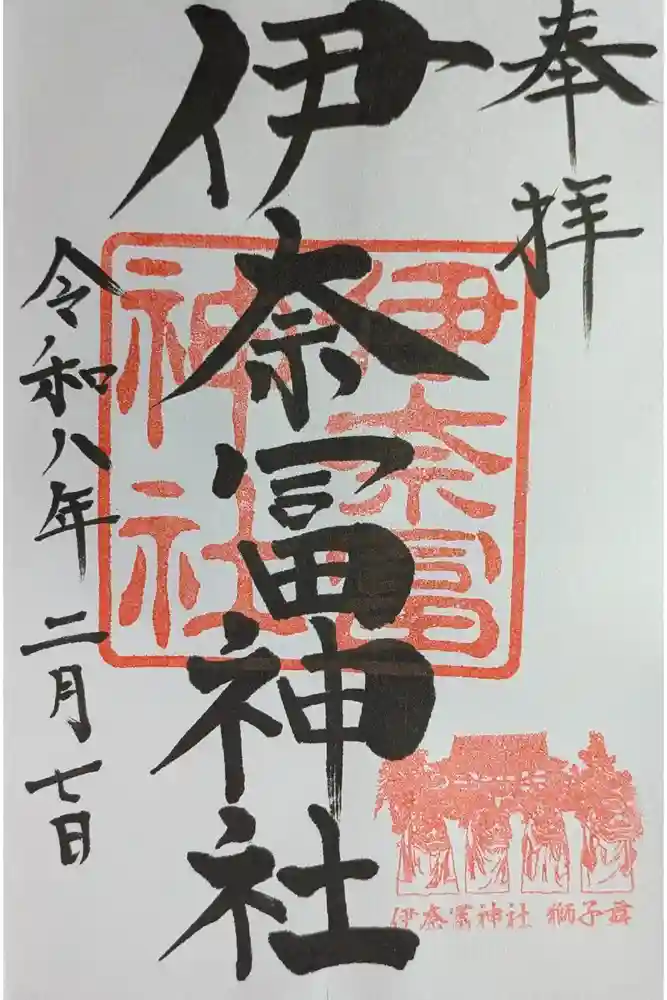 奉拝
伊奈冨神社
伊奈冨神社
令和八年二月七日
伊奈冨神社 獅子舞